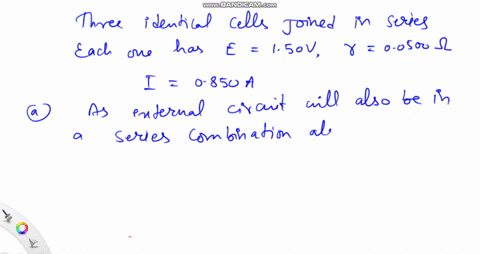 www.BANDICAM.com
Three identical cells joined in series
Each one has E = 1.50V, r = 0.0500 Ω
I = 0.850 A
(a) As external circuit will also be in
a series combination al